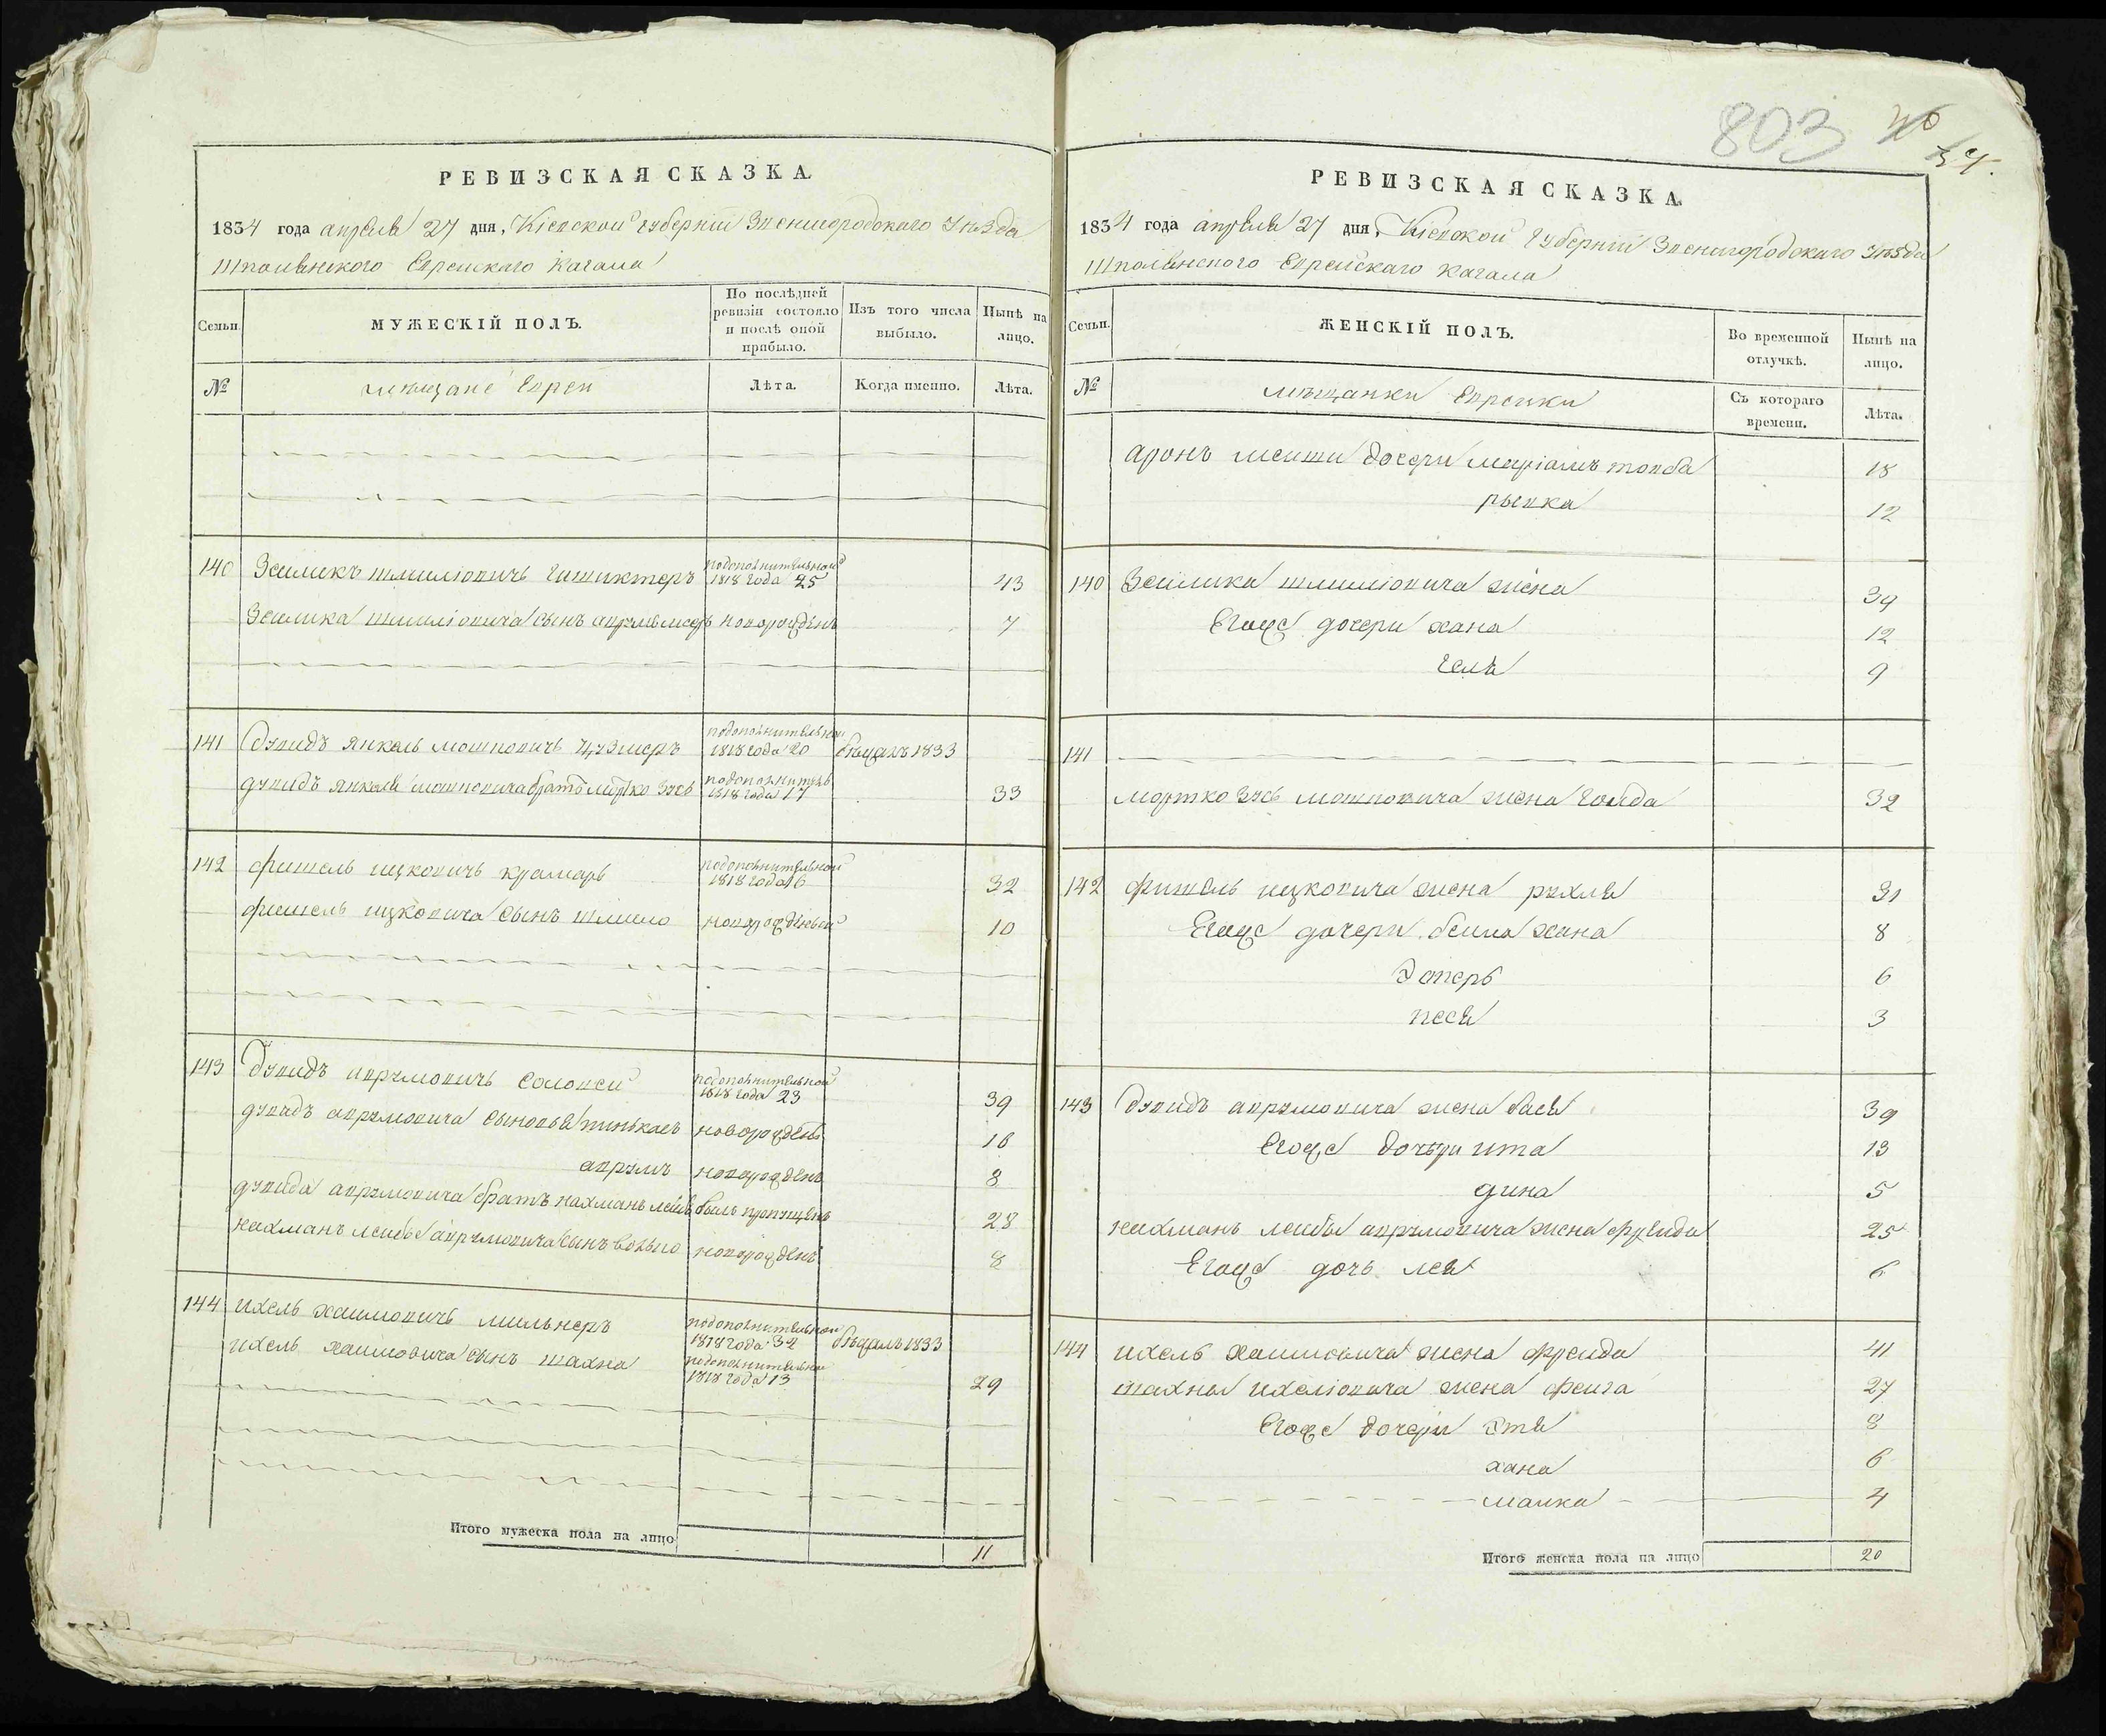 РЕВИЗСКАЯ СКАЗКА
1834 года апреля 27 дня, Кіевской губерніи Звенигородского Уѣзда
Шполянского Еврейскаго Кагала
Семьи.
МУЖЕСКІЙ ПОЛЪ.
По послѣдней
ревизіи состояло
и послѣ оной
прибыло.
Изъ того числа
выбыло.
Нынѣ на
лицо.
№
мещане Евреи
Лѣта.
Когда именно.
Лѣта.
140 Зейликъ шмилiовичъ подополнительной 1818 года 25 43
Зейлика шмилiовича сынъ новорожденъ 7
141 Дувидъ янкель мошковичъ подополнительной 1818 года 20 бежалъ 1833
дувидъ янкеля мошковича братъ мортко зусь 1818 года 17 33
142 фишель ицковичъ крамарь подополнительной 1818 года 16 32
фишель ицковича сынъ шлиомо 10
143 Дувидъ аврумовичъ подополнительной 1818 года 23 39
дувидъ аврумовича сыновья пинькасъ новорожденъ 16
аврумъ новорожденъ 8
дувида аврумовича братъ нахманъ лейба былъ пропущенъ 28
нахманъ лейбы аврумовича сынъ новорожденъ 8
144 ихель хаимовичъ мильнеръ подополнительной 1818 года 34 бежалъ 1833
ихель хаимовича сынъ шахна подополнительной 1818 года 13 29
Итого мужеска пола на лицо 11
803
РЕВИЗСКАЯ СКАЗКА
1834 года апреля 27 дня, Кіевской губерніи Звенигородскаго Уѣзда
Шполянского Еврейскаго кагала
Семьи.
ЖЕНСКІЙ ПОЛЪ.
Во временной
отлучкѣ.
Нынѣ на
лицо.
№
мѣщанки Еврейки
Съ котораго
времени.
Лѣта.
аронъ дочери маріамъ товба 18
рывка 12
140 Зейлика шмилiовича жена 39
Егоже дочери хана 12
геля 9
141
мортко зусь мошковича жена голда 32
142 фишель ицковича жена рухля 31
Егоже дочери бейла хана 8
6
песя 3
143 Дувидъ аврумовича жена бася 39
Егоже дочери ита 13
дина 5
нахманъ лейбы аврумовича жена фрейда 25
Егоже дочь лея 6
144 ихель хаимовича жена фрейда 41
шахны ихелiовича жена фейга 27
Егоже дочери этя 8
хана 6
малка 4
Итого женска пола на лицо 20